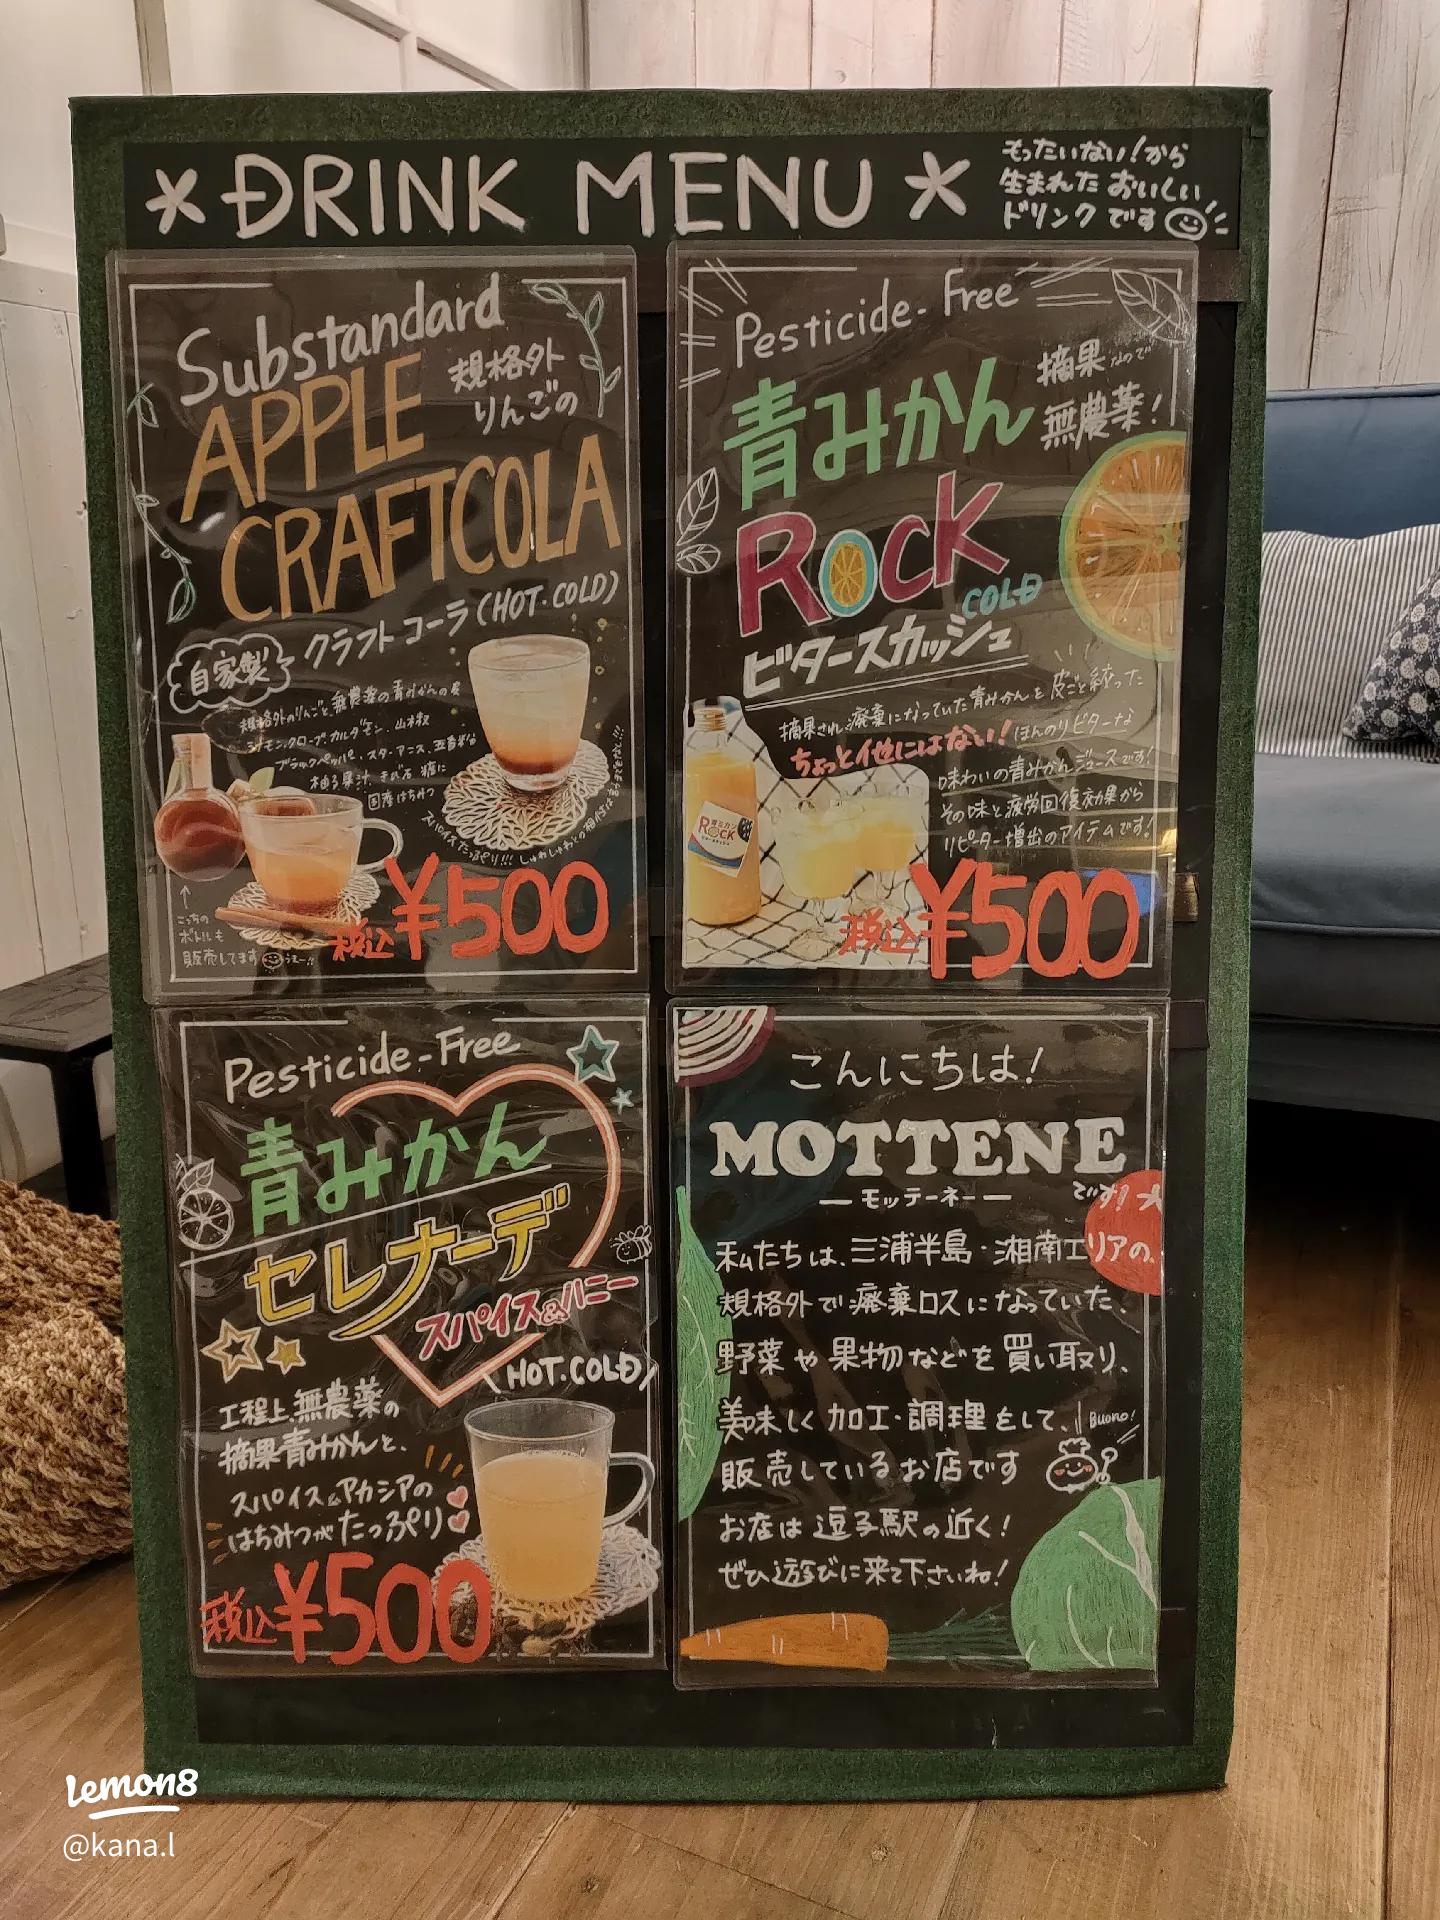 *DRINK MENU*
もったいない!から
生まれた おいしい
ドリンクです
Substandard
APPLE
規格外
りんごの
CRAFTCOLA
クラフトコーラ(HOT・COLD)
自家製
規格外のりんごと、無農薬の青みかんの皮
シナモン、クローブ、カルダモン、山椒
ブラックペッパー、スターアニス、五香粉
柚子果汁、きび石糖に
国産はちみつ
スパイスたっぷり!!!
↑
こっちの
ボトルも
販売してます
税込¥500
Pesticide-Free
摘果なので
無農薬!
青みかん
ROCK
COLD
ビタースカッシュ
摘果され、廃棄になっていた青みかんを皮ごと絞った
ちょっと他にはない!ほんのりビターな
味わいの青みかんジュースです!
その味と疲労回復効果から
リピーター増出のアイテムです!
青ミカン
ROCK
税込¥500
Pesticide-Free
青みかん
セレナーデ
スパイス&ハニー
HOT.COLD
工程上、無農薬の
摘果青みかんと、
スパイス&アカシアの
はちみつがたっぷり
税込¥500
こんにちは!
MOTTENE
—モッテーネー—
です!
私たちは、三浦半島・湘南エリアの、
規格外で廃棄ロスになっていた、
野菜や果物などを買い取り、
美味しく加工・調理をして、
Buono!
販売しているお店です
お店は逗子駅の近く!
ぜひ遊びに来て下さいね!
Lemon8
@kana.l